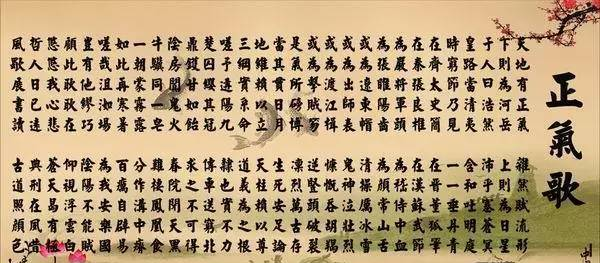 正氣歌
天地有正氣 雜然賦流形
下則為河岳 上則為日星
于人曰浩然 沛乎塞蒼冥
皇路當清夷 含和吐明庭
時窮節乃見 一一垂丹青
在齊太史簡 在晉董狐筆
在秦張良椎 在漢蘇武節
為嚴將軍頭 為嵇侍中血
為張睢陽齒 為顏常山舌
或為遼東帽 清操厲冰雪
或為出師表 鬼神泣壯烈
或為渡江楫 慷慨吞胡羯
或為擊賊笏 逆豎頭破裂
是氣所磅礡 凜烈萬古存
當其貫日月 生死安足論
地維賴以立 天柱賴以尊
三綱實系命 道義為之根
嗟予遘陽九 隸也實不力
楚囚纓其冠 傳車送窮北
鼎鑊甘如飴 求之不可得
陰房闃鬼火 春院閟天黑
牛驥同一皂 雞棲鳳凰食
一朝蒙霧露 分作溝中瘠
如此再寒暑 百癘自辟易
嗟哉沮洳場 為我安樂國
豈有他繆巧 陰陽不能賊
顧此耿耿在 仰視浮雲白
悠悠我心悲 蒼天曷有極
哲人日已遠 典刑在夙昔
風檐展書讀 古道照顏色